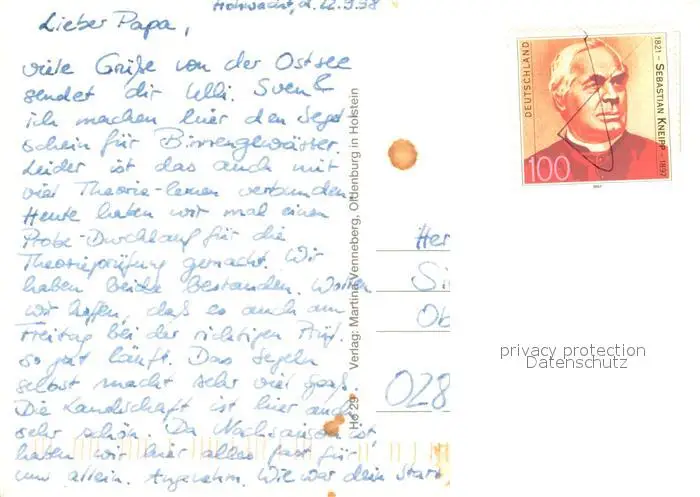 Hohwacht, d. 22.9.98
Lieber Papa,
viele Grüße von der Ostsee
sendet dir Ulli. Sven &
ich machen hier den Segel
schein für Binnengewässer.
Leider ist das auch mit
viel Theorie-lernen verbunden.
Heute haben wir mal einen
Probe-Durchlauf für die
Theorieprüfung gemacht. Wir
haben beide bestanden. Wollen
wir hoffen, daß es auch am
Freitag bei der richtigen Prüf.
so gut läuft. Das Segeln
selbst macht sehr viel Spaß.
Die Landschaft ist hier auch
sehr schön. Da Nachsaison ist,
haben wir hier alles fast für
uns allein. Angenehm. Wie war dein Start
Ho 29 Verlag: Martina Venneberg, Oldenburg in Holstein
DEUTSCHLAND
1821 - SEBASTIAN KNEIPP - 1897
100
1997
Her
Si
Ob
028
privacy protection
Datenschutz